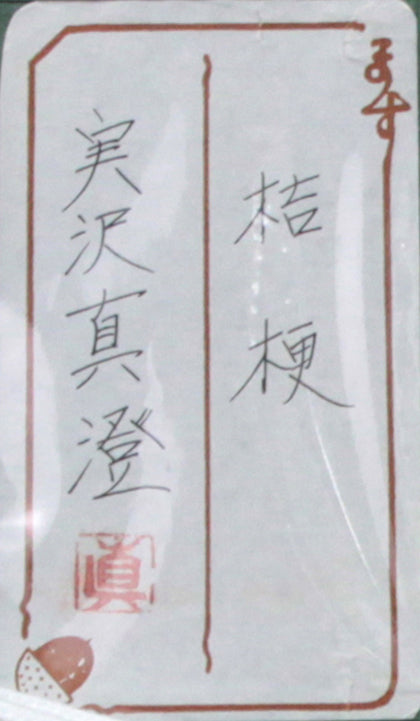 桔梗
実沢真澄
眞